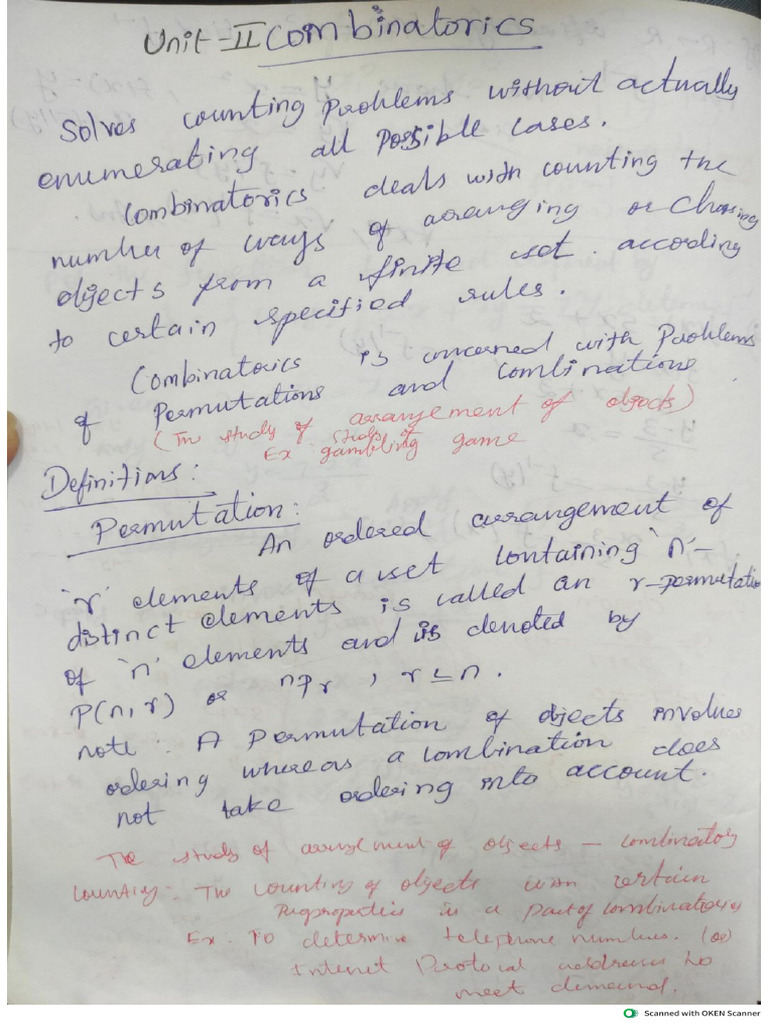 Unit-II Combinatorics
Solves counting Problems without actually
enumerating all possible cases.
Combinatorics deals with counting the
number of ways of arranging or Chosing
objects from a finite set according
to certain specified rules.
Combinatorics is concerned with Problems
of Permutations and Combinations
(The study of arrangement of objects)
Ex. study of gambling game
Definitions:
Permutation:
An ordered arrangement of
'r' elements of a set containing 'n'-
distinct elements is called an r-permutation
of 'n' elements and is denoted by
P(n,r) or nPr, r ≤ n.
note: A Permutation of objects involves
ordering whereas a combination does
not take ordering into account.
The study of arrangement of objects - combinatory
Counting: The counting of objects with certain
properties is a part of combinatorics
Ex. To determine telephone numbers. (or)
Internet Protocal addresses to
meet demand.
Scanned with OKEN Scanner